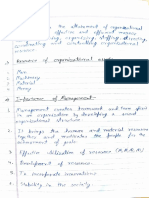 the attainment of organizational
effective and efficient manner
planning, organizing, staffing, directing,
and controlling organizational
resources of organizational
Men
Machinery
Material
Money
Importance of Management -
Management creates teamwork and
in an organization by developing a sound
organizational structure
It brings the human and material resources
together and motivates the people for the
achievement of goals
Effective utilization of resources (M, M, M, M)
Development of resources
To incorporate innovations
Stability in the society